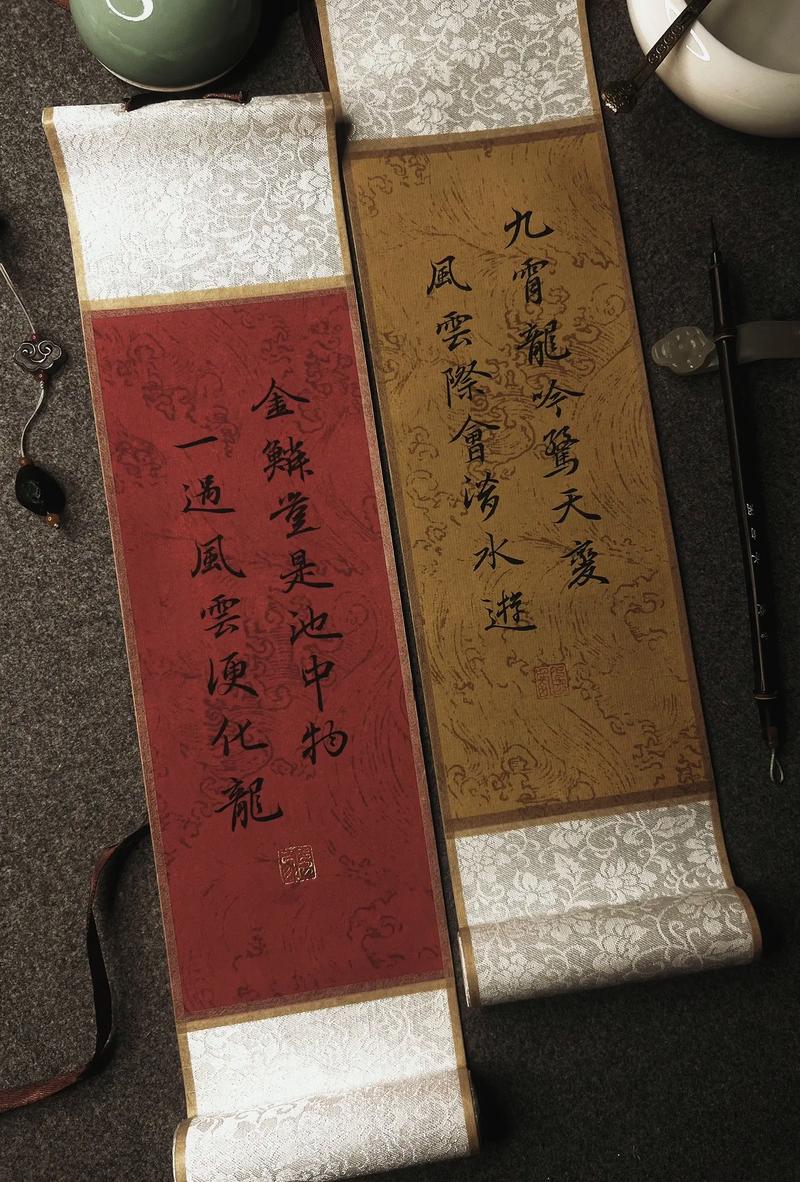 九霄龍吟驚天變
風雲際會潛水遊
金鱗豈是池中物
一遇風雲便化龍